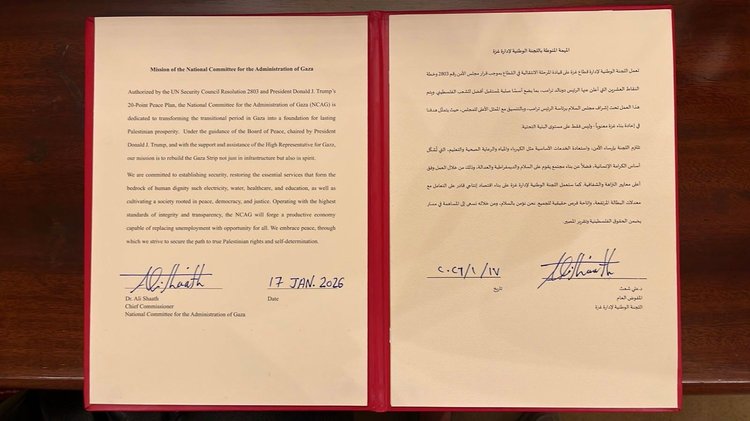 Mission of the National Committee for the Administration of Gaza
Authorized by the UN Security Council Resolution 2803 and President Donald J. Trump's
20-Point Peace Plan, the National Committee for the Administration of Gaza (NCAG) is
dedicated to transforming the transitional period in Gaza into a foundation for lasting
Palestinian prosperity. Under the guidance of the Board of Peace, chaired by President
Donald J. Trump, and with the support and assistance of the High Representative for Gaza,
our mission is to rebuild the Gaza Strip not just in infrastructure but also in spirit.
We are committed to establishing security, restoring the essential services that form the
bedrock of human dignity such electricity, water, healthcare, and education, as well as
cultivating a society rooted in peace, democracy, and justice. Operating with the highest
standards of integrity and transparency, the NCAG will forge a productive economy
capable of replacing unemployment with opportunity for all. We embrace peace, through
which we strive to secure the path to true Palestinian rights and self-determination.
Ali Shaath
17 JAN. 2026
Dr. Ali Shaath
Date
Chief Commissioner
National Committee for the Administration of Gaza
المهمة المنوطة باللجنة الوطنية لإدارة غزة
تعمل اللجنة الوطنية لإدارة قطاع غزة على قيادة المرحلة الانتقالية في القطاع بموجب قرار مجلس الأمن رقم 2803 وخطة
النقاط العشرين التي أعلن عنها الرئيس دونالد ترامب، بما يضع أسسًا صلبة لمستقبل أفضل للشعب الفلسطيني. ويتم
هذا العمل تحت إشراف مجلس السلام برئاسة الرئيس ترامب، وبالتنسيق مع الممثل الأعلى للمجلس، حيث يتمثل هدفنا
في إعادة بناء غزة معنوياً - وليس فقط على مستوى البنية التحتية.
تلتزم اللجنة بإرساء الأمن، واستعادة الخدمات الأساسية مثل الكهرباء والمياه والرعاية الصحية والتعليم، التي تُشكّل
أساس الكرامة الإنسانية، فضلاً عن بناء مجتمع يقوم على السلام والديمقراطية والعدالة، وذلك من خلال العمل وفق
أعلى معايير النزاهة والشفافية. كما ستعمل اللجنة الوطنية لإدارة غزة على بناء اقتصاد إنتاجي قادر على التعامل مع
معدلات البطالة المرتفعة، وإتاحة فرص حقيقية للجميع. نحن نؤمن بالسلام، ومن خلاله نسعى إلى المساهمة في مسار
يضمن الحقوق الفلسطينية وتقرير المصير.
Ali Shaath
٢٠٢٦/١/١٧
د.علي شعث
تاريخ
المفوض العام
اللجنة الوطنية لإدارة غزة